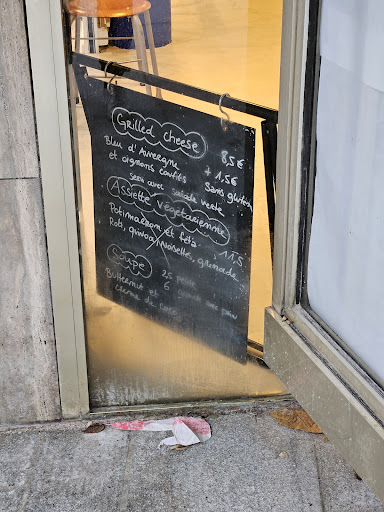 Grilled cheese
Bleu d'Auvergne 8,5€
et oignons confits + 1,5€
Sans gluten
servi avec salade verte
Assiette végétarienne
Potimarron et féta 11,5
Roti, quinoa, noisettes, grenade
Soupe 2,5
Butternut et 6 grande avec pain
crème de coco